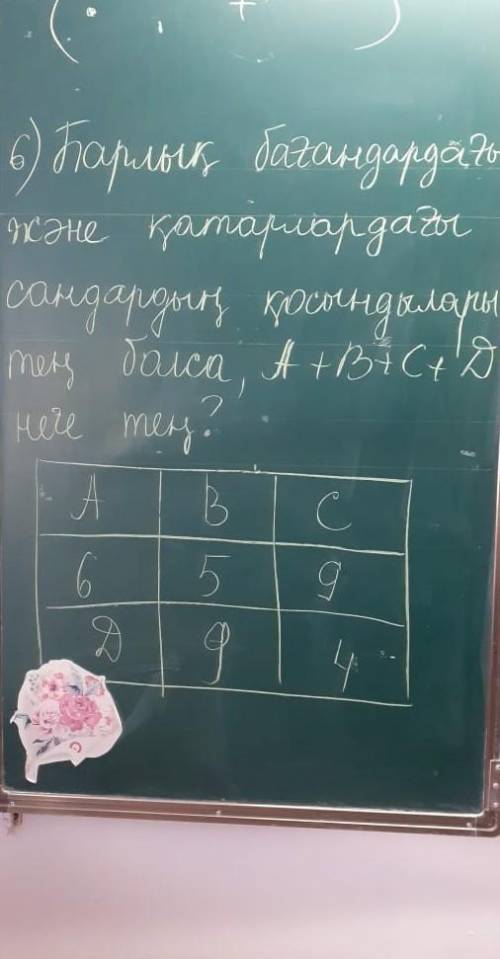 ( . , + )
6) Барлық бағандардағы
және қатарлардағы
сандардың қосындылары
тең болса, A+B+C+D
неге тең?
A B C
6 5 9
D 9 4